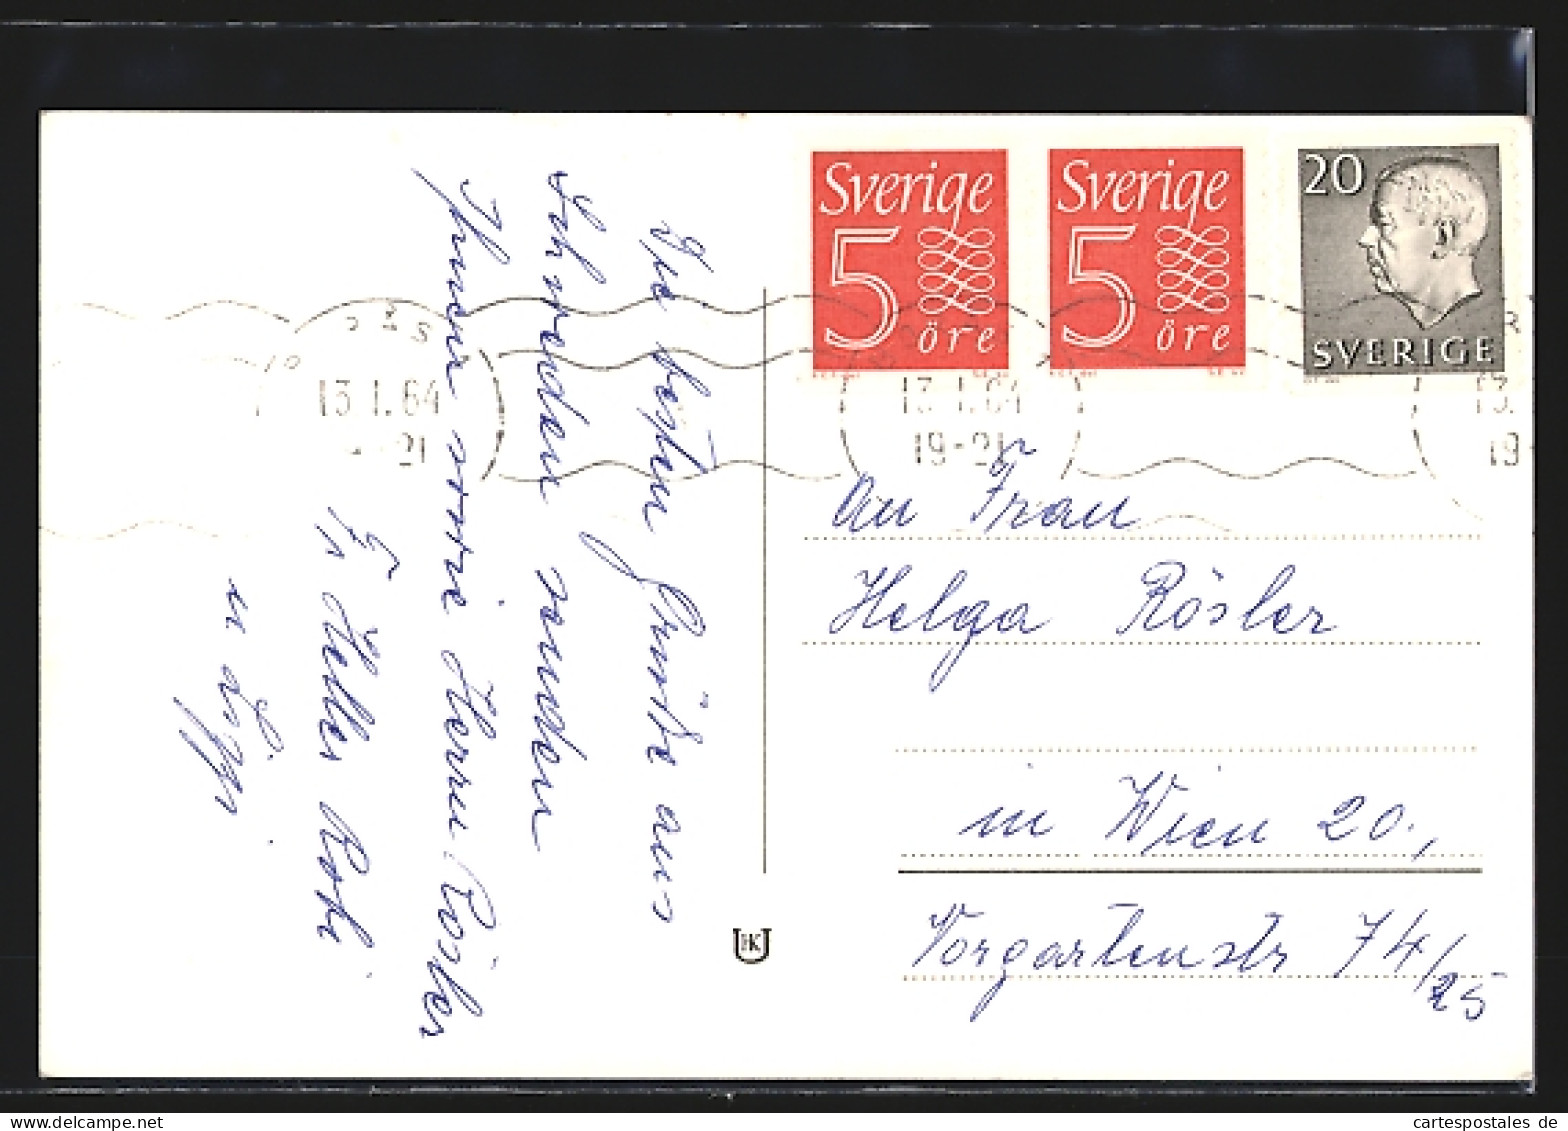 Sverige
5
öre
Sverige
5
öre
20
SVERIGE
13.1.64
21
13.1.64
19-21
13.
19-
Die besten Grüße aus
Schweden senden
Ihnen sowie Herrn Rösler
Fr
u
an Frau
Helga Rösler
in Wien 20.,
Vorgartenstr 74/25
HK
cartespostales de